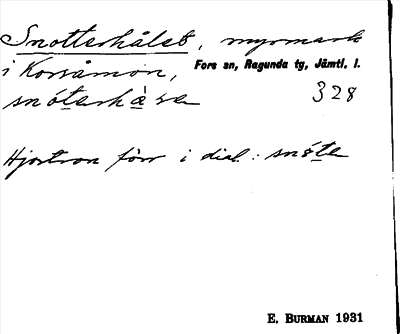 Snotterhålet, myrmark
i Korsåmon, Fors sn, Ragunda tg, Jämtl. l.
snóterhà̱re 328
Hjortron förr i dial.: snóte
E. BURMAN 1931